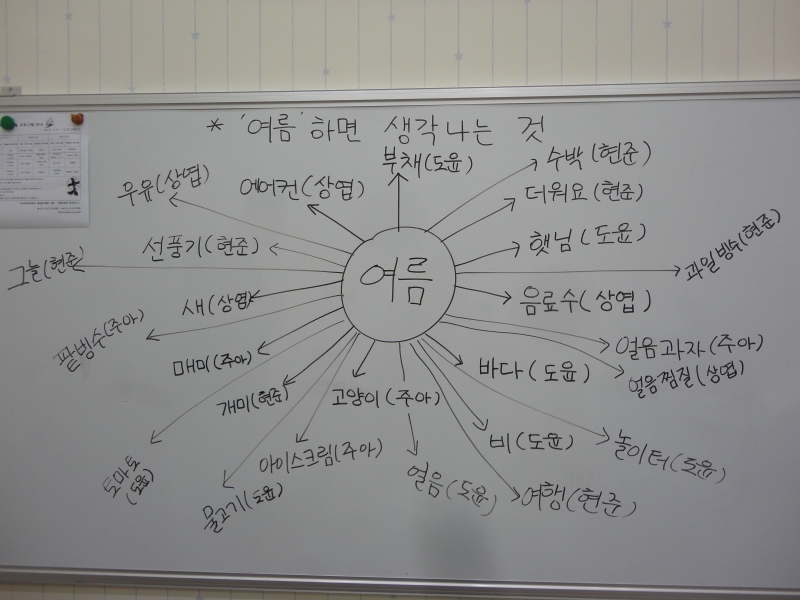 * '여름' 하면 생각나는 것
부채(도윤)
수박(현준)
우유(상엽)
에어컨(상엽)
더워요(현준)
선풍기(현준)
햇님(도윤)
과일빙수(현준)
그늘(현준)
여름
새(상엽)
음료수(상엽)
팥빙수(주아)
얼음과자(주아)
매미(주아)
바다(도윤)
얼음찜질(상엽)
개미(현준)
고양이(주아)
비(도윤)
놀이터(도윤)
아이스크림(주아)
토마토
(도윤)
물고기(도윤)
얼음(도윤)
여행(현준)